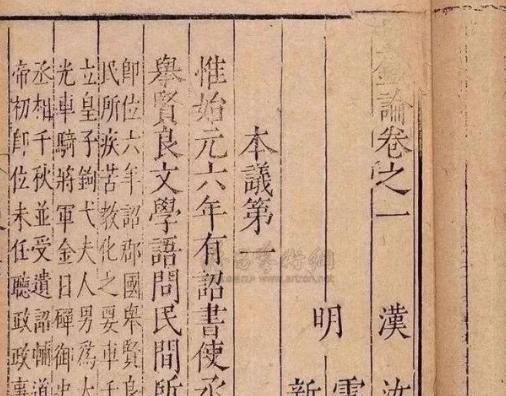 論卷之一
漢 汝
明
雲
新
本議第一
惟始元六年有詔書使丞
舉賢良文學語問民間所
即位六年詔郡國舉賢良
民所疾苦教化之要車千
立皇子鉤弋夫人男爲大
光車騎將軍金日磾御史
丞相千秋並受遺詔輔道
帝初即位未任聽政政事